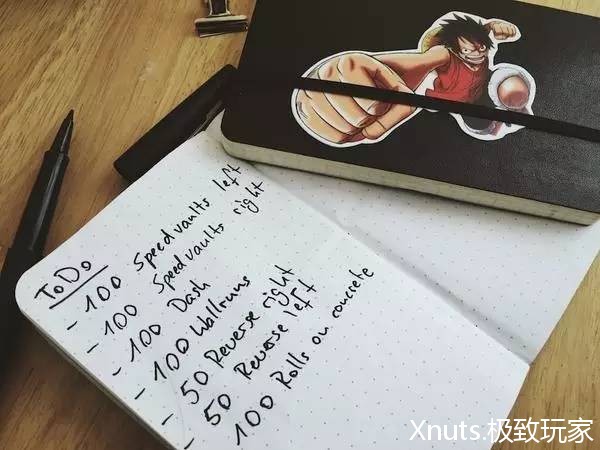 ToDo
- 100 Speedvaults left
- 100 Speedvaults right
- 100 Dash
- 100 Wallruns
- 50 Reverse right
- 50 Reverse left
100 Rolls on concrete
Xnuts.极致玩家